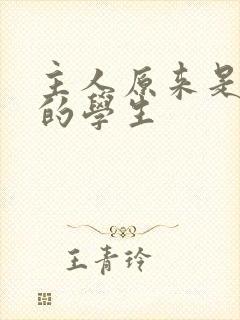 主人原来是
的學生
王青玲